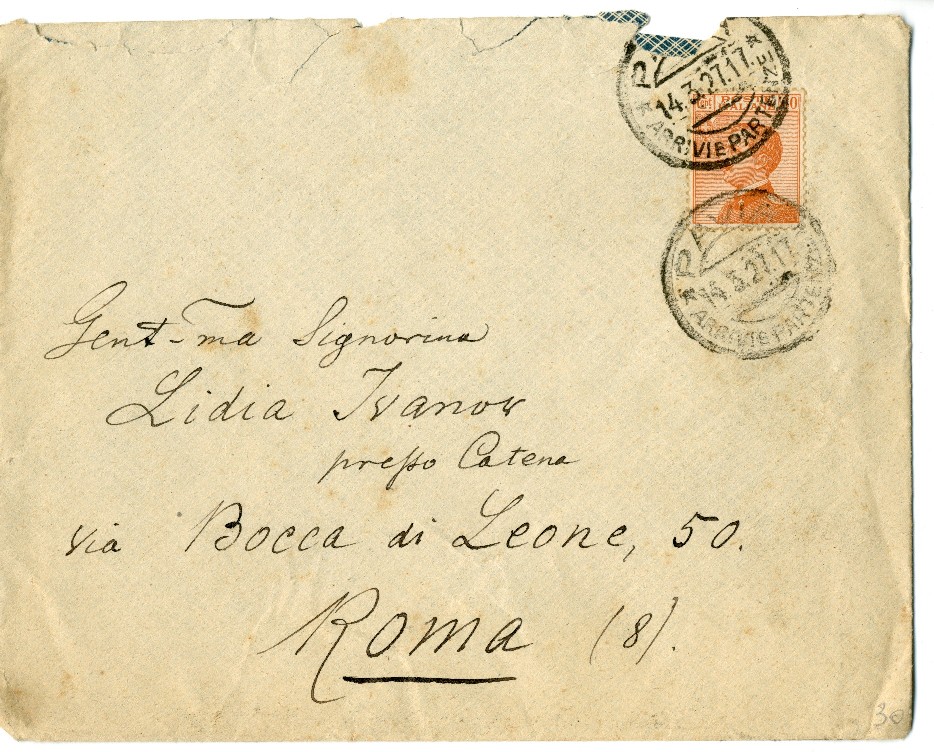 PAVIA
14.3.27.17
* ARRIVI E PARTENZE *
PAVIA
* ARRIVI E PARTENZE
Gent-ma Signorina
Lidia Ivanow
presso Catena
via Bocca di Leone, 50.
Roma (8).
30